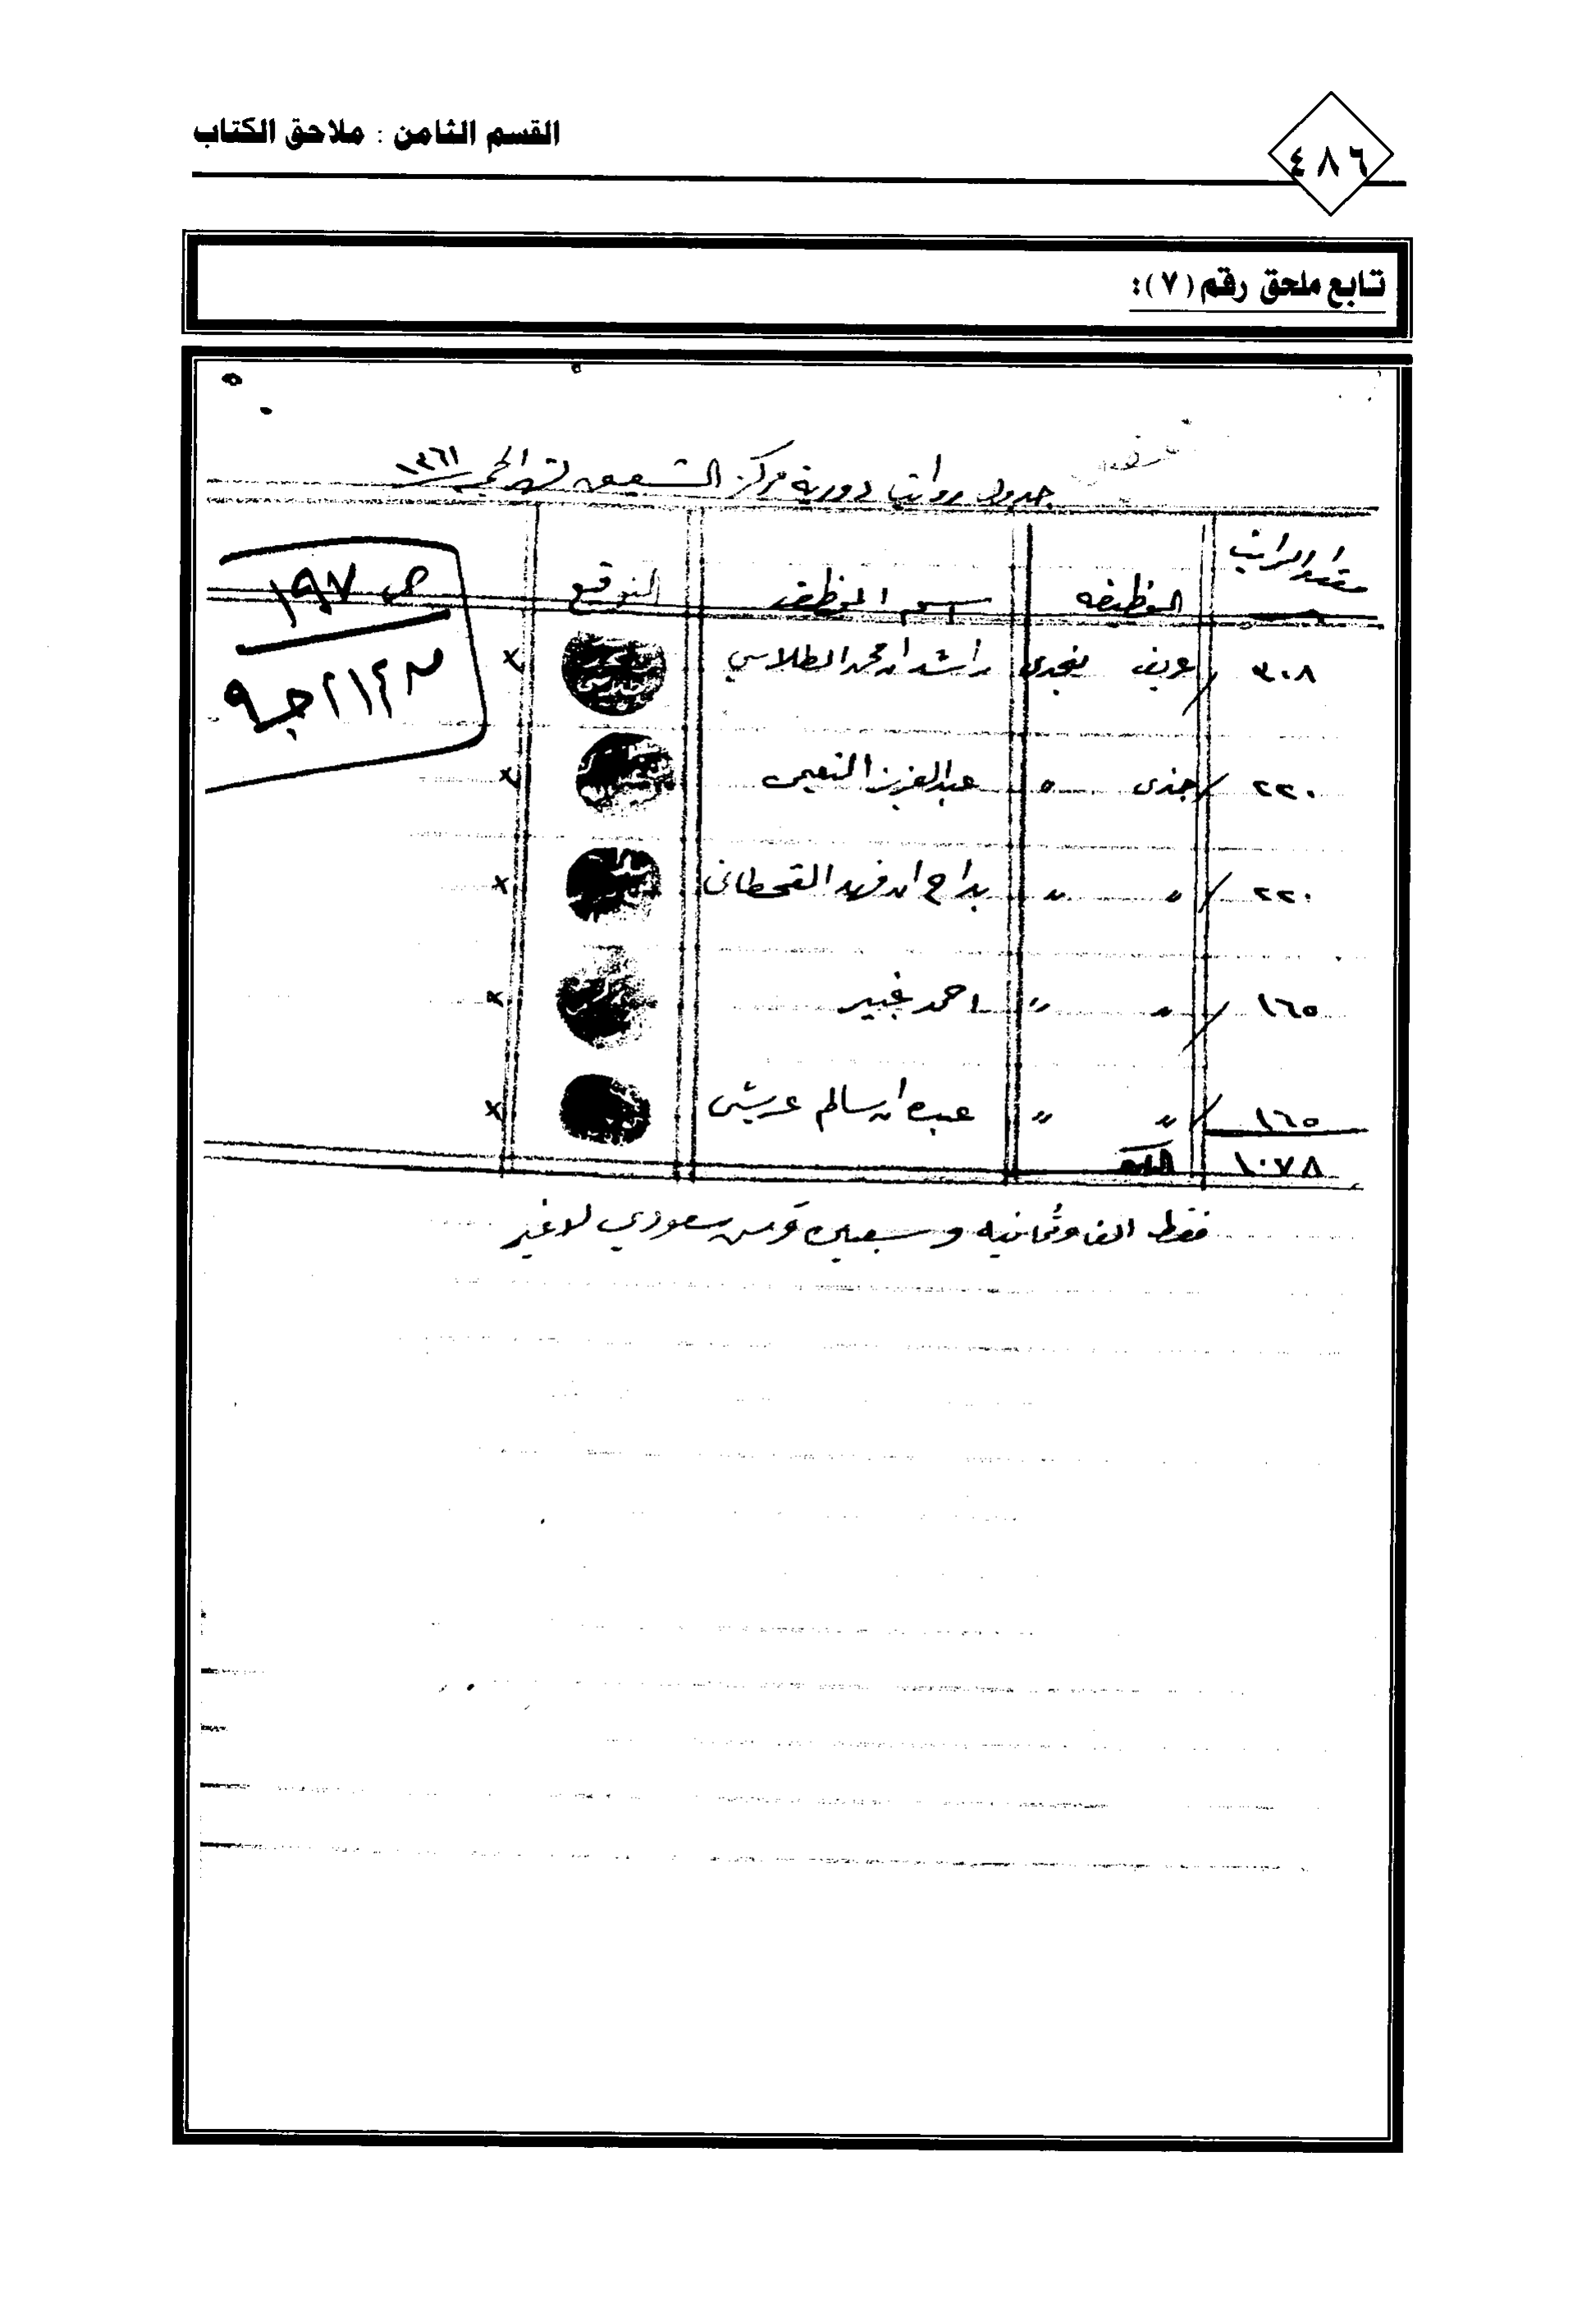 القسم الثامن : ملاحق الكتاب
٤٨٦
تابع ملحق رقم (٧):
جدول رواتب دورية مركز الشقيق لشهر الحجه ١٣٦١
مقدار الراتب الوظيفه اسم الموظف التوقيع
ص ١٩٧
٣٠٨ عريف نجدي راشد ابن محمد الطلاسي ×
٢١٢ جـ ٩
٢٢٠ جندي " عبدالعزيز النعيمي ×
٢٢٠ " " بداح ابن فهد القحطاني ×
١٦٥ " " احمد غبير ×
١٦٥ " " عبده ابن سالم عريشي ×
١٠٧٨
فقط الفا وثمانيه وسبعين قرش سعودي لاغير